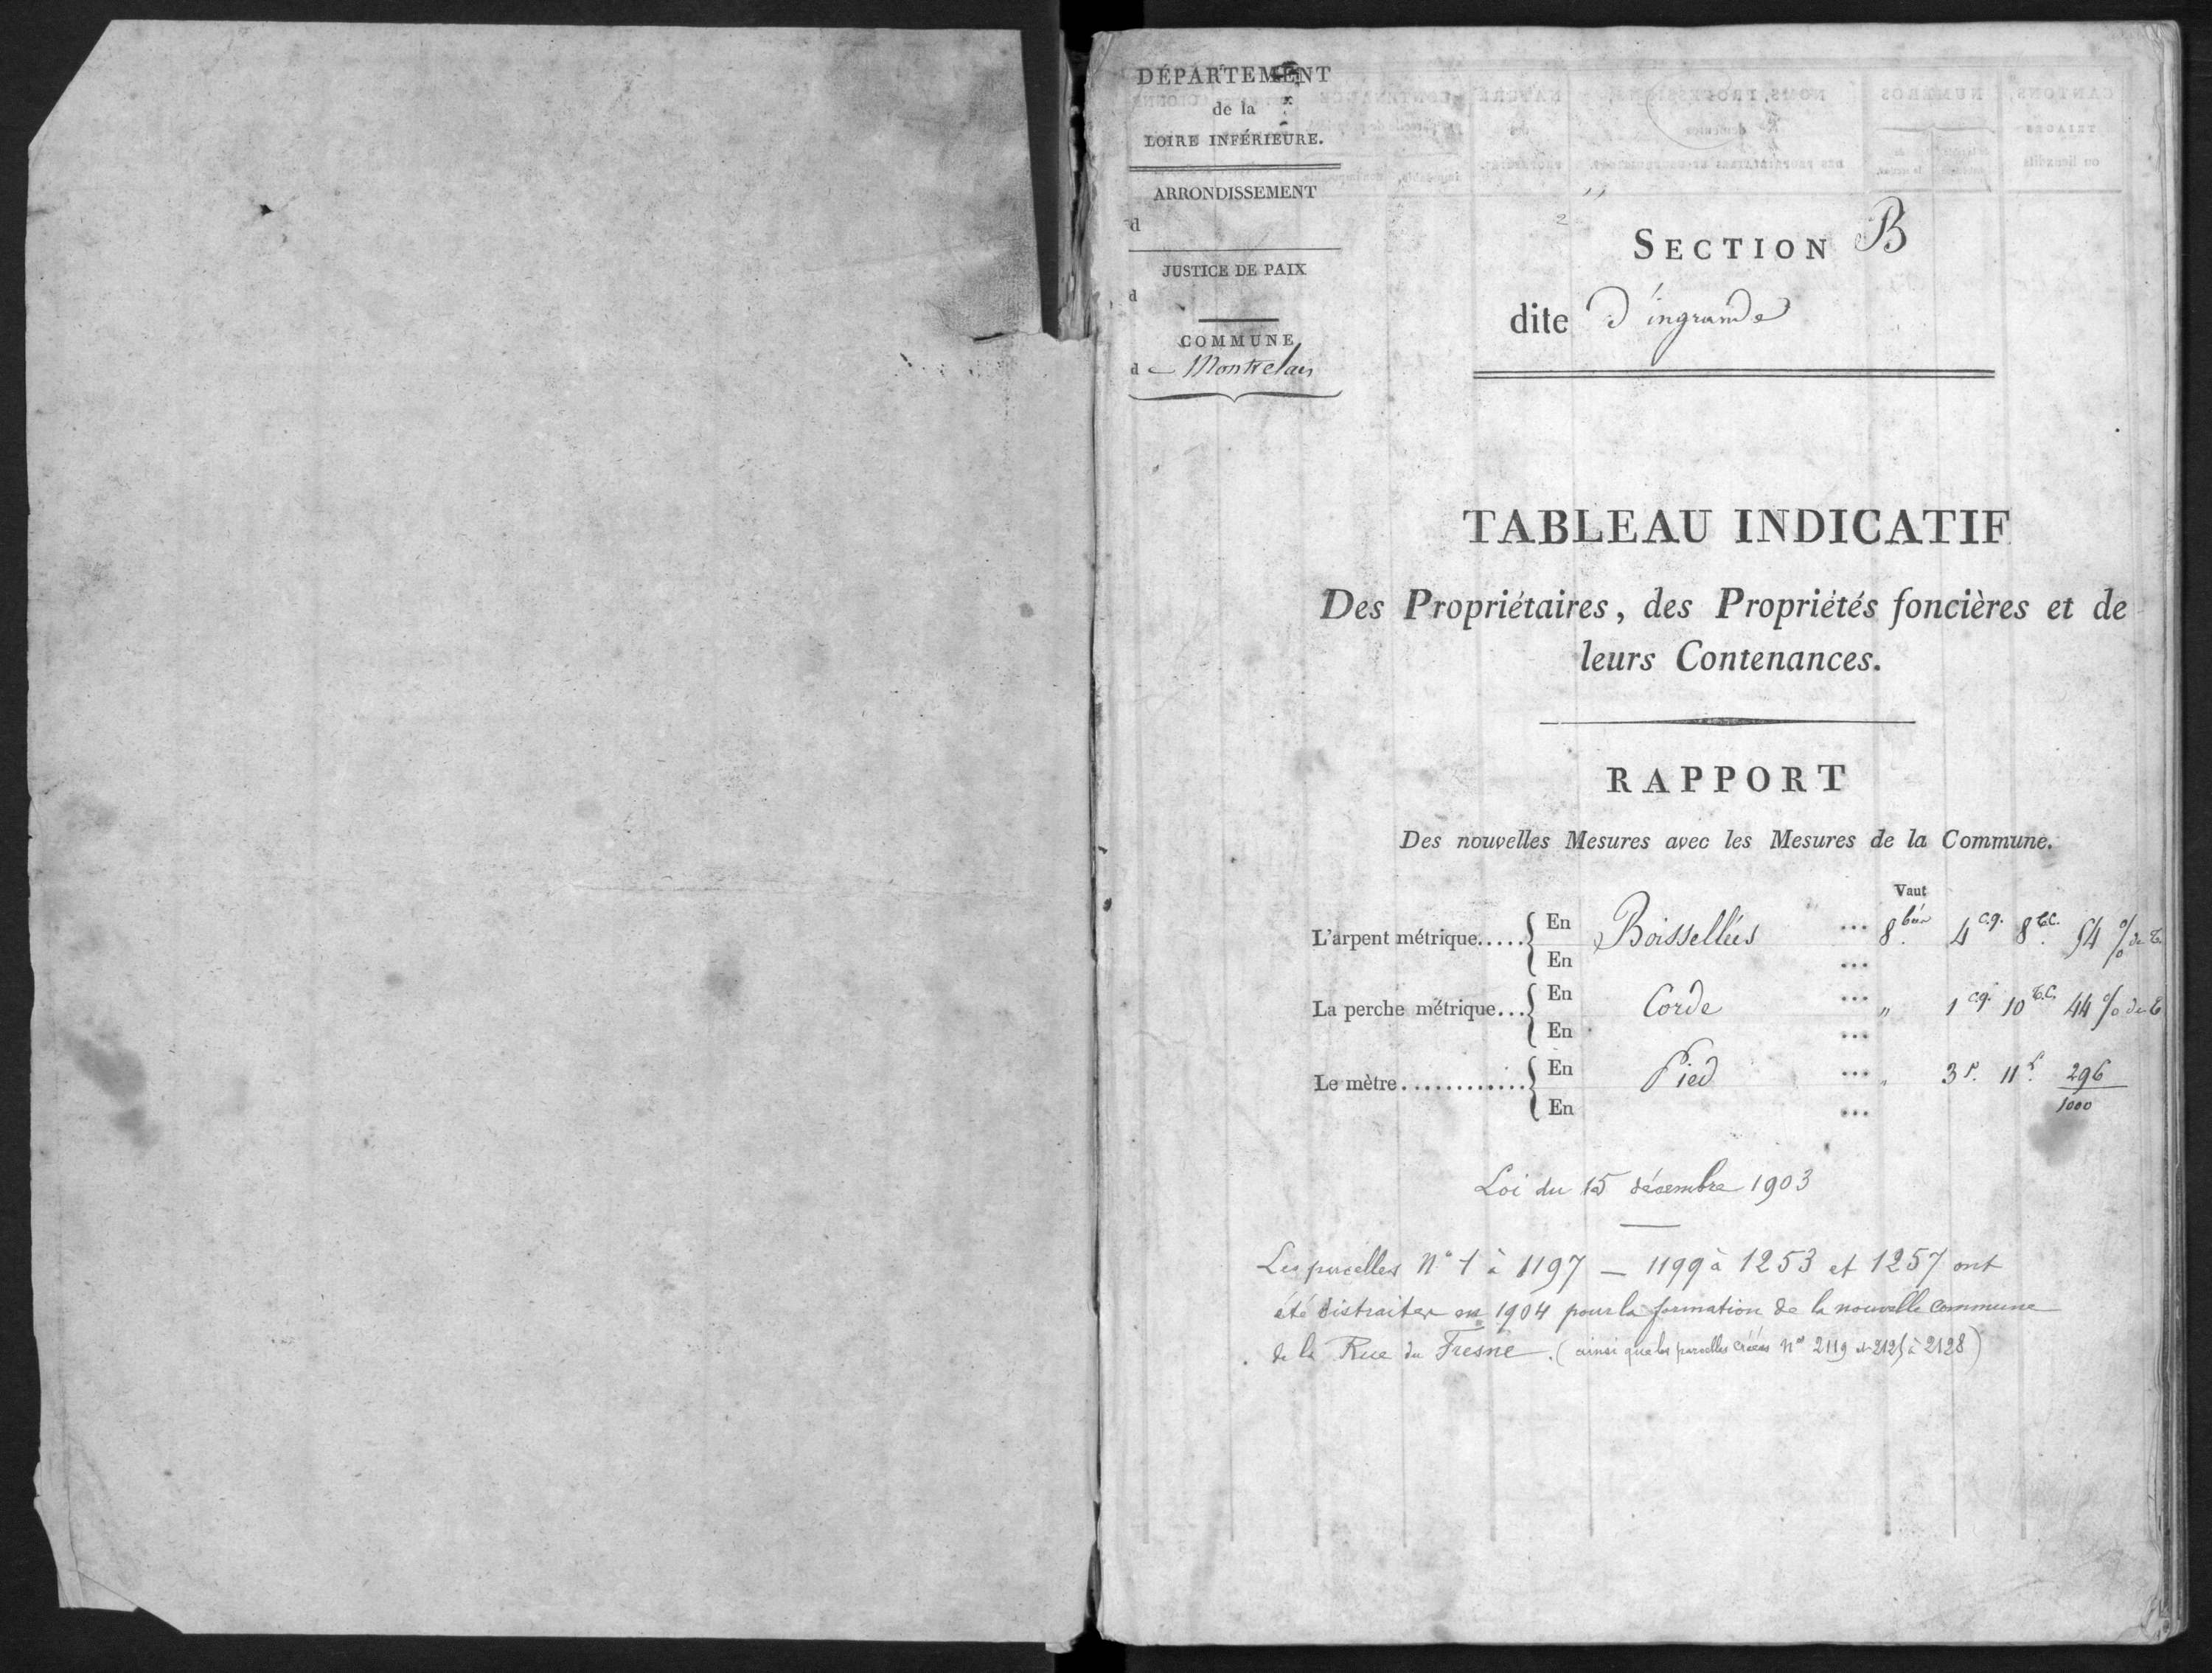 DÉPARTEMENT
de la
LOIRE INFÉRIEURE.
ARRONDISSEMENT
d
JUSTICE DE PAIX
d
COMMUNE
de Montrelais
SECTION B
dite D'ingrande
TABLEAU INDICATIF
Des Propriétaires, des Propriétés foncières et de
leurs Contenances.
RAPPORT
Des nouvelles Mesures avec les Mesures de la Commune.
Vaut
L'arpent métrique..... { En Boissellées ... 8 4 c.q. 8 54 %
En ...
La perche métrique... { En Corde ... " 1 c.q. 10 44 %
En ...
Le mètre............ { En Pied ... " 3 P. 11 296/1000
En ...
Loi du 15 décembre 1903
Les parcelles N° 1 à 1197 — 1199 à 1253 et 1257 ont
été distraites en 1904 pour la formation de la nouvelle commune
de la Rue du Fresne. (ainsi que les parcelles créées Nos 2119 et 2125 à 2128)